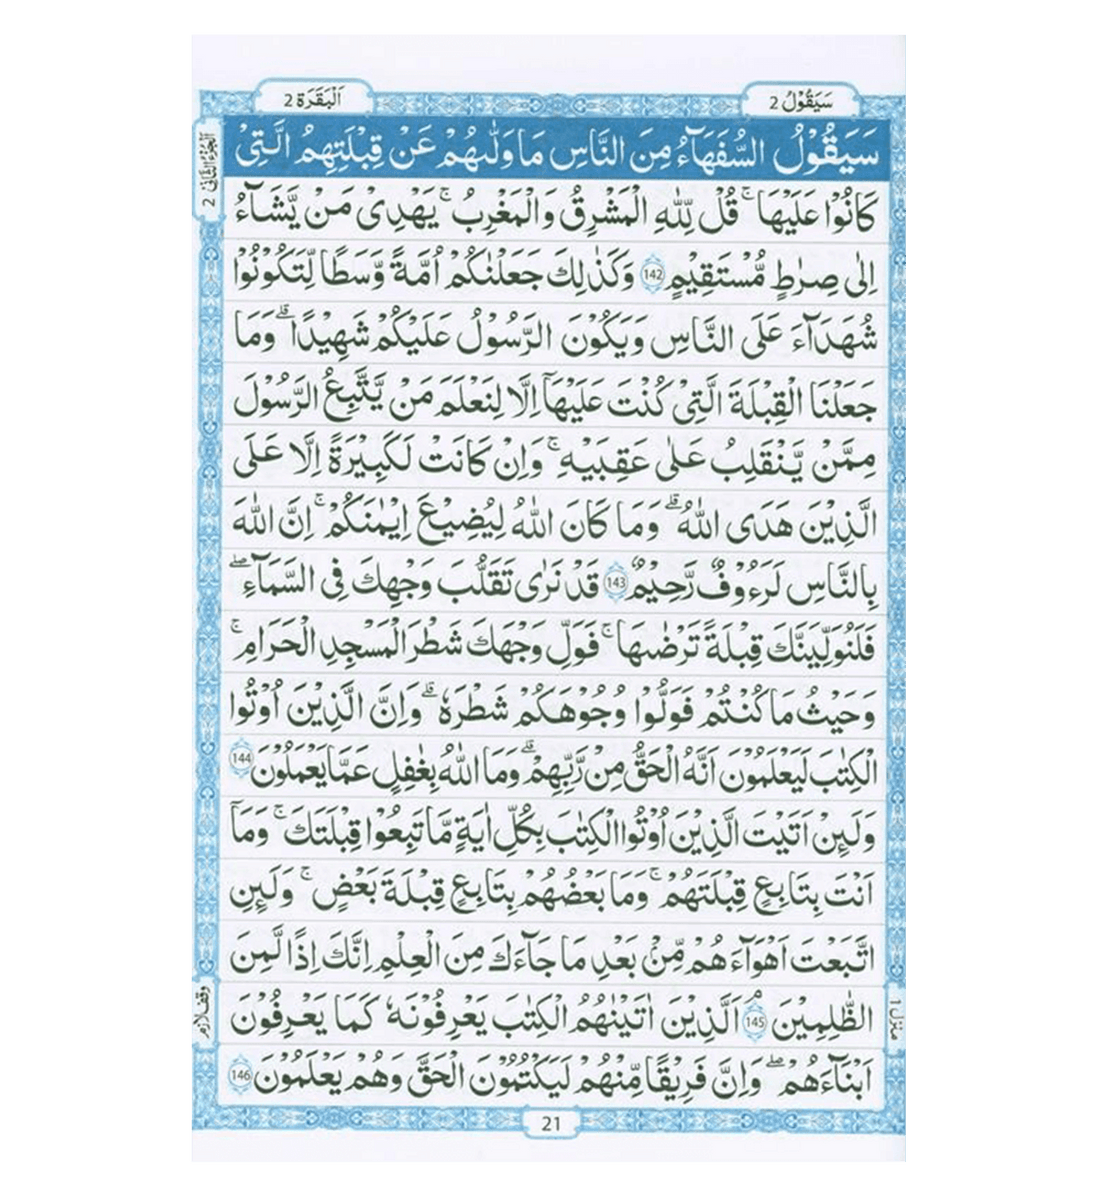 سَيَقُوْلُ 2
اَلْبَقَرَة 2
اَلْجُزْءُ الثَّانِىْ 2
سَيَقُوْلُ السُّفَهَآءُ مِنَ النَّاسِ مَا وَلّٰىهُمْ عَنْ قِبْلَتِهِمُ الَّتِىْ
كَانُوْا عَلَيْهَا ۚ قُلْ لِّلّٰهِ الْمَشْرِقُ وَالْمَغْرِبُ ۚ يَهْدِىْ مَنْ يَّشَآءُ
اِلٰى صِرٰطٍ مُّسْتَقِيْمٍ 142 وَكَذٰلِكَ جَعَلْنٰكُمْ اُمَّةً وَّسَطًا لِّتَكُوْنُوْا
شُهَدَآءَ عَلَى النَّاسِ وَيَكُوْنَ الرَّسُوْلُ عَلَيْكُمْ شَهِيْدًا ۗ وَمَا
جَعَلْنَا الْقِبْلَةَ الَّتِىْ كُنْتَ عَلَيْهَآ اِلَّا لِنَعْلَمَ مَنْ يَّتَّبِعُ الرَّسُوْلَ
مِمَّنْ يَّنْقَلِبُ عَلٰى عَقِبَيْهِ ۚ وَاِنْ كَانَتْ لَكَبِيْرَةً اِلَّا عَلَى
الَّذِيْنَ هَدَى اللّٰهُ ۗ وَمَا كَانَ اللّٰهُ لِيُضِيْعَ اِيْمٰنَكُمْ ۚ اِنَّ اللّٰهَ
بِالنَّاسِ لَرَءُوْفٌ رَّحِيْمٌ 143 قَدْ نَرٰى تَقَلُّبَ وَجْهِكَ فِى السَّمَآءِ ۖ
فَلَنُوَلِّيَنَّكَ قِبْلَةً تَرْضٰىهَا ۚ فَوَلِّ وَجْهَكَ شَطْرَ الْمَسْجِدِ الْحَرَامِ ۚ
وَحَيْثُ مَا كُنْتُمْ فَوَلُّوْا وُجُوْهَكُمْ شَطْرَهٗ ۗ وَاِنَّ الَّذِيْنَ اُوْتُوا
الْكِتٰبَ لَيَعْلَمُوْنَ اَنَّهُ الْحَقُّ مِنْ رَّبِّهِمْ ۗ وَمَا اللّٰهُ بِغٰفِلٍ عَمَّا يَعْمَلُوْنَ 144
وَلَئِنْ اَتَيْتَ الَّذِيْنَ اُوْتُوا الْكِتٰبَ بِكُلِّ اٰيَةٍ مَّا تَبِعُوْا قِبْلَتَكَ ۚ وَمَآ
اَنْتَ بِتَابِعٍ قِبْلَتَهُمْ ۚ وَمَا بَعْضُهُمْ بِتَابِعٍ قِبْلَةَ بَعْضٍ ۚ وَلَئِنِ
اتَّبَعْتَ اَهْوَآءَهُمْ مِّنْۢ بَعْدِ مَا جَآءَكَ مِنَ الْعِلْمِ اِنَّكَ اِذًا لَّمِنَ
الظّٰلِمِيْنَ 145 ۘ اَلَّذِيْنَ اٰتَيْنٰهُمُ الْكِتٰبَ يَعْرِفُوْنَهٗ كَمَا يَعْرِفُوْنَ
اَبْنَآءَهُمْ ۖ وَاِنَّ فَرِيْقًا مِّنْهُمْ لَيَكْتُمُوْنَ الْحَقَّ وَهُمْ يَعْلَمُوْنَ 146
منزل 1
وقف لازم
21